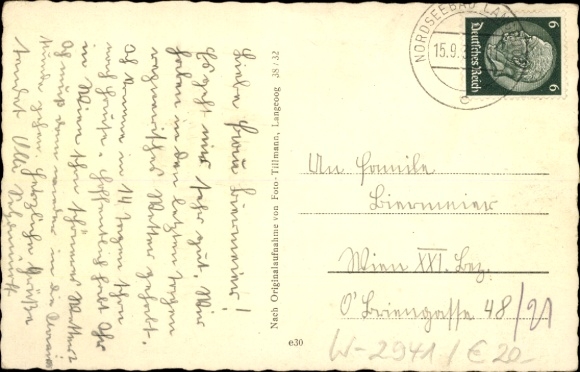 Liebe Frau Biermeier!
Es geht mir sehr gut. Wir
haben in den letzten Tagen
regnerisches Wetter gehabt.
Ich komme in 14 Tagen schon
nach Hause. Hoffentlich habt Ihr
in Wien schön schöneres Wetter.
Ich muß dann wieder in die
gehen. Herzliche Grüße
sendet Elli
Nach Originalaufnahme von Foto-Tillmann, Langeoog 38/32
NORDSEEBAD LAN
15.9.
Deutsches Reich
6
6
An Familie
Biermeier
Wien XXI. Bez.
O'Briengasse 48/21
e30
W-2941/€20-